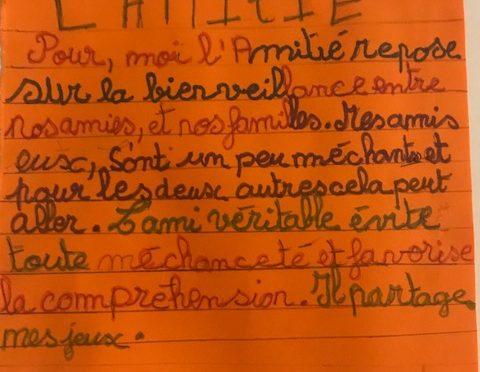 L'AMITIÉ
Pour, moi l'Amitié repose
sur la bienveillance entre
nos amies, et nos familles. Mes amis
eux, Sont un peu méchants et
pour les deux autres cela peut
aller. L'ami véritable évite
toute méchanceté et favorise
la compréhension. Il partage
mes jeux.